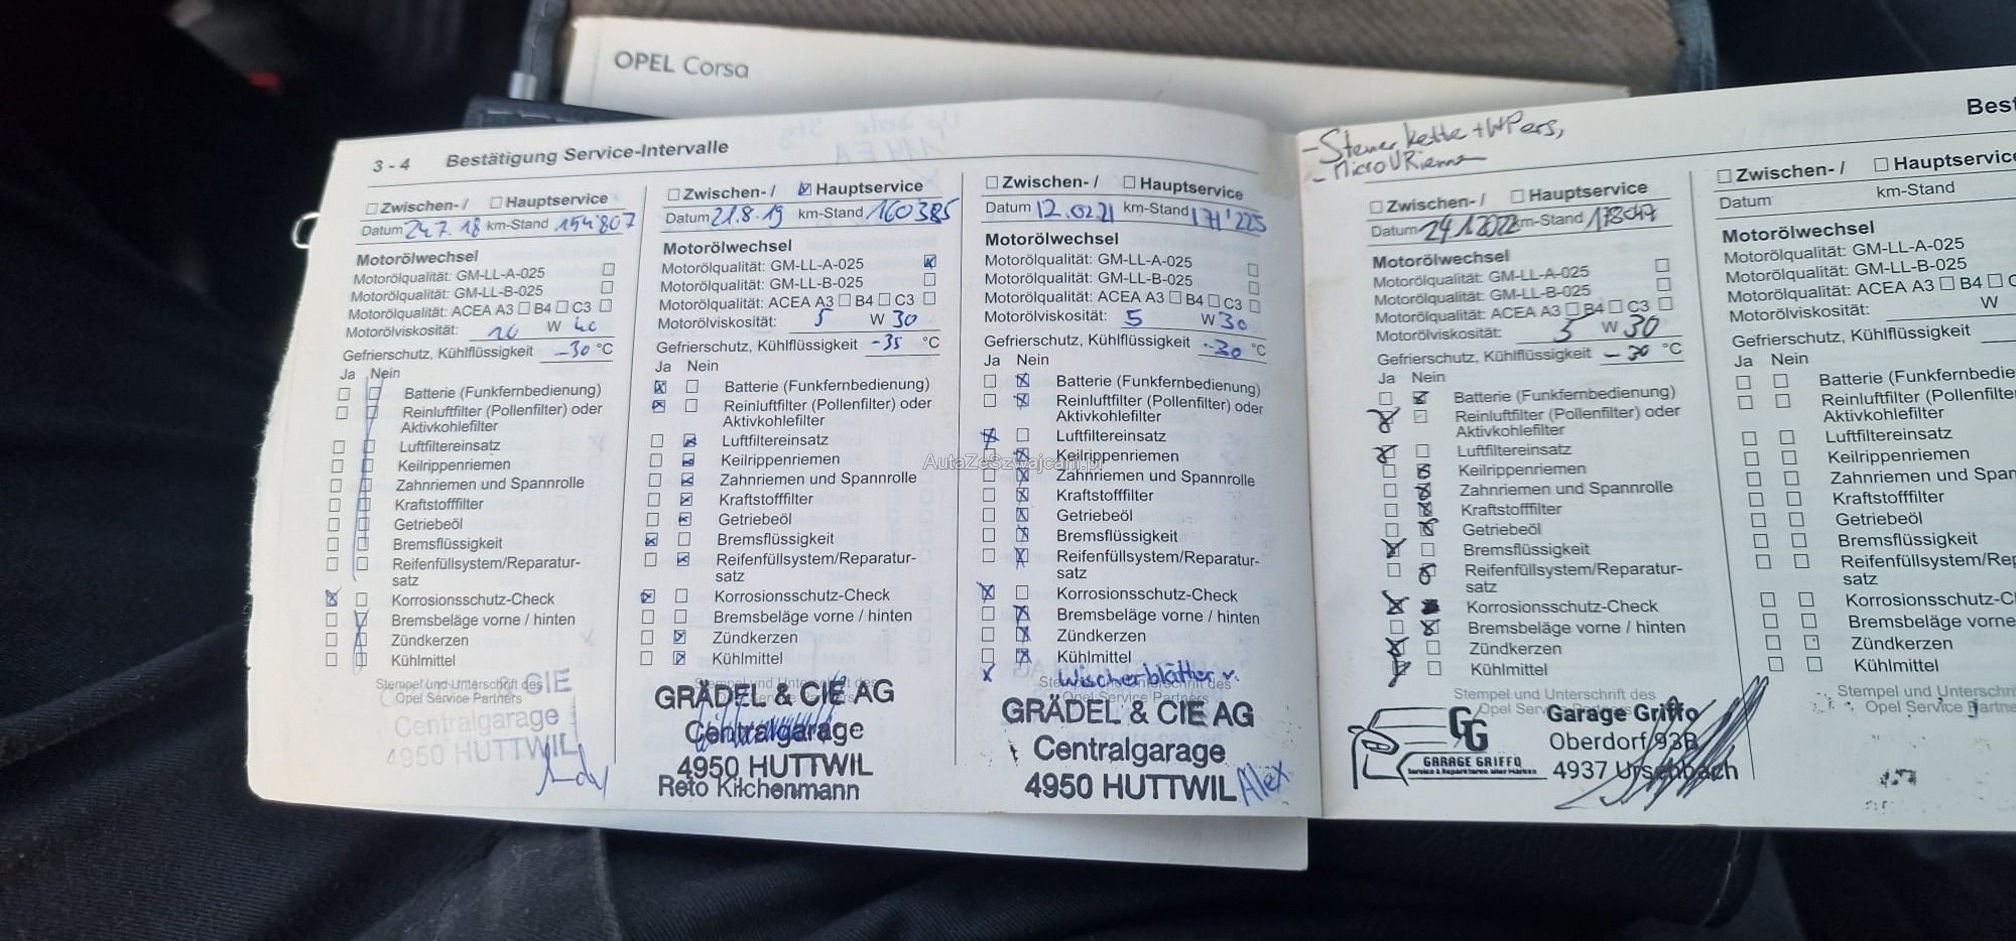 OPEL Corsa
3 - 4 Bestätigung Service-Intervalle
Zwischen- / Hauptservice
Datum 24.7.18 km-Stand 154'807
Motorölwechsel
Motorölqualität: GM-LL-A-025
Motorölqualität: GM-LL-B-025
Motorölqualität: ACEA A3 B4 C3
Motorölviskosität: 10 W 40
Gefrierschutz, Kühlflüssigkeit -30 °C
Ja Nein
Batterie (Funkfernbedienung)
Reinluftfilter (Pollenfilter) oder
Aktivkohlefilter
Luftfiltereinsatz
Keilrippenriemen
Zahnriemen und Spannrolle
Kraftstofffilter
Getriebeöl
Bremsflüssigkeit
Reifenfüllsystem/Reparatur-
satz
Korrosionsschutz-Check
Bremsbeläge vorne / hinten
Zündkerzen
Kühlmittel
Stempel und Unterschrift des
Opel Service Partners
CIE
Centralgarage
4950 HUTTWIL
Zwischen- / Hauptservice
Datum 21.8.19 km-Stand 160385
Motorölwechsel
Motorölqualität: GM-LL-A-025
Motorölqualität: GM-LL-B-025
Motorölqualität: ACEA A3 B4 C3
Motorölviskosität: 5 W 30
Gefrierschutz, Kühlflüssigkeit -35 °C
Ja Nein
Batterie (Funkfernbedienung)
Reinluftfilter (Pollenfilter) oder
Aktivkohlefilter
Luftfiltereinsatz
Keilrippenriemen
Zahnriemen und Spannrolle
Kraftstofffilter
Getriebeöl
Bremsflüssigkeit
Reifenfüllsystem/Reparatur-
satz
Korrosionsschutz-Check
Bremsbeläge vorne / hinten
Zündkerzen
Kühlmittel
GRÄDEL & CIE AG
Centralgarage
4950 HUTTWIL
Reto Kilchenmann
Zwischen- / Hauptservice
Datum 12.02.21 km-Stand 171'225
Motorölwechsel
Motorölqualität: GM-LL-A-025
Motorölqualität: GM-LL-B-025
Motorölqualität: ACEA A3 B4 C3
Motorölviskosität: 5 W 30
Gefrierschutz, Kühlflüssigkeit -30 °C
Ja Nein
Batterie (Funkfernbedienung)
Reinluftfilter (Pollenfilter) oder
Aktivkohlefilter
Luftfiltereinsatz
Keilrippenriemen
Zahnriemen und Spannrolle
Kraftstofffilter
Getriebeöl
Bremsflüssigkeit
Reifenfüllsystem/Reparatur-
satz
Korrosionsschutz-Check
Bremsbeläge vorne / hinten
Zündkerzen
Kühlmittel
x Wischerblätter v.
GRÄDEL & CIE AG
Centralgarage
4950 HUTTWIL
Alex
AutaZeSzwajcarii.pl
Best
- Steuerkette
Zwischen- / Hauptservice
Datum 24.1.2022 km-Stand 178047
Motorölwechsel
Motorölqualität: GM-LL-A-025
Motorölqualität: GM-LL-B-025
Motorölqualität: ACEA A3 B4 C3
Motorölviskosität: 5 W 30
Gefrierschutz, Kühlflüssigkeit -30 °C
Ja Nein
Batterie (Funkfernbedienung)
Reinluftfilter (Pollenfilter) oder
Aktivkohlefilter
Luftfiltereinsatz
Keilrippenriemen
Zahnriemen und Spannrolle
Kraftstofffilter
Getriebeöl
Bremsflüssigkeit
Reifenfüllsystem/Reparatur-
satz
Korrosionsschutz-Check
Bremsbeläge vorne / hinten
Zündkerzen
Kühlmittel
Stempel und Unterschrift des
GG
GARAGE GRIFFO
Service & Reparaturen aller Marken
Garage Griffo
Oberdorf 93B
4937 Ursenbach
Zwischen- / Hauptservice
Datum km-Stand
Motorölwechsel
Motorölqualität: GM-LL-A-025
Motorölqualität: GM-LL-B-025
Motorölqualität: ACEA A3 B4 C
Motorölviskosität: W
Gefrierschutz, Kühlflüssigkeit
Ja Nein
Batterie (Funkfernbedie
Reinluftfilter (Pollenfilte
Aktivkohlefilter
Luftfiltereinsatz
Keilrippenriemen
Zahnriemen und Span
Kraftstofffilter
Getriebeöl
Bremsflüssigkeit
Reifenfüllsystem/Rep
satz
Korrosionsschutz-C
Bremsbeläge vorne
Zündkerzen
Kühlmittel
Stempel und Unterschri
Opel Service Partne